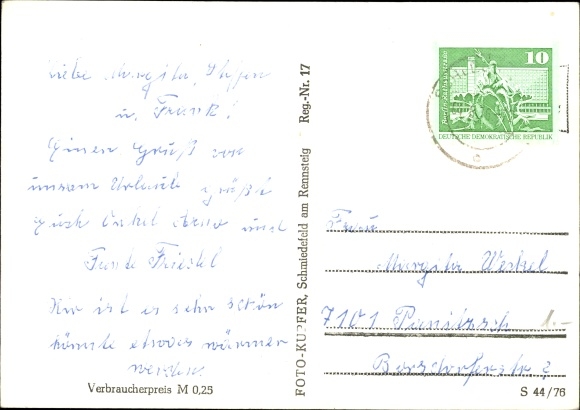 Liebe Margitta, Steffen
u. Frank!
Einen Gruß von
unserem Urlaub grüßt
Euch Onkel Arno und
Tante Friedel
Hier ist es sehr schön
könnte etwas wärmer
werden.
Verbraucherpreis M 0,25
FOTO-KUPFER, Schmiedefeld am Rennsteig Reg.-Nr. 17
10
DEUTSCHE DEMOKRATISCHE REPUBLIK
Frau
Margitta Werkel
7101 Panitzsch
Borsdorferstr 2
1.-
S 44/76